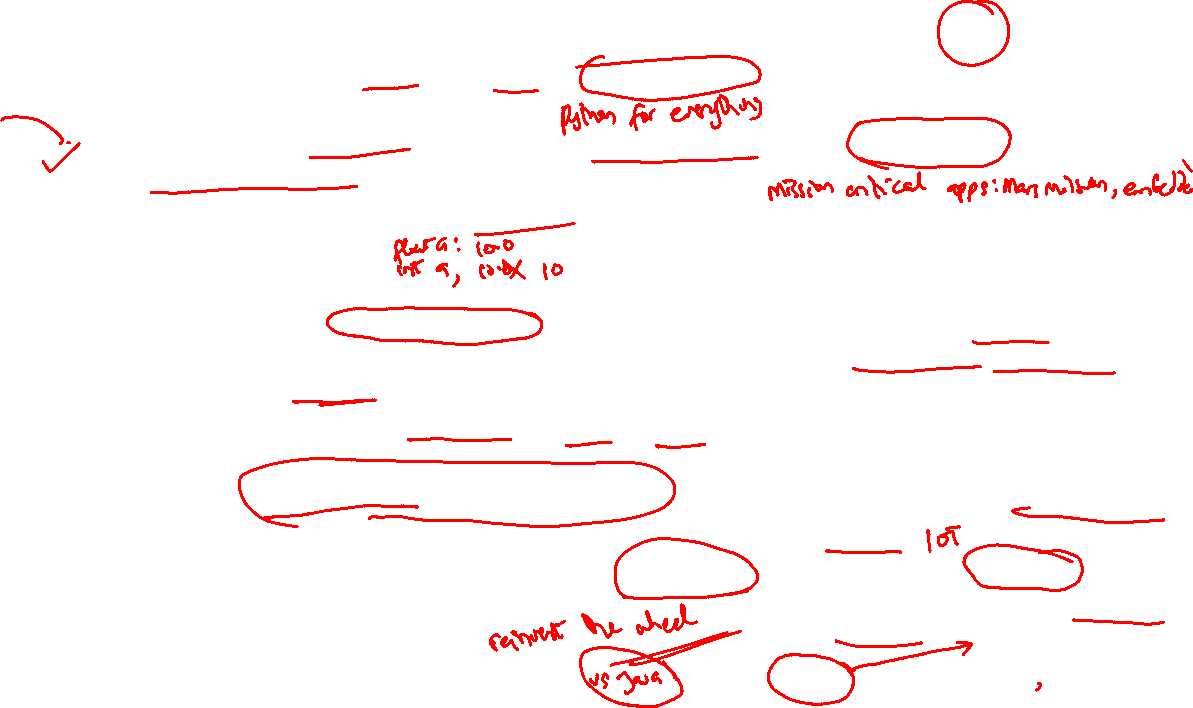 Python for everything
mission critical apps: Mars
float a: 10.0
int a, 10.0 10
IOT
reinvent the wheel
vs Java